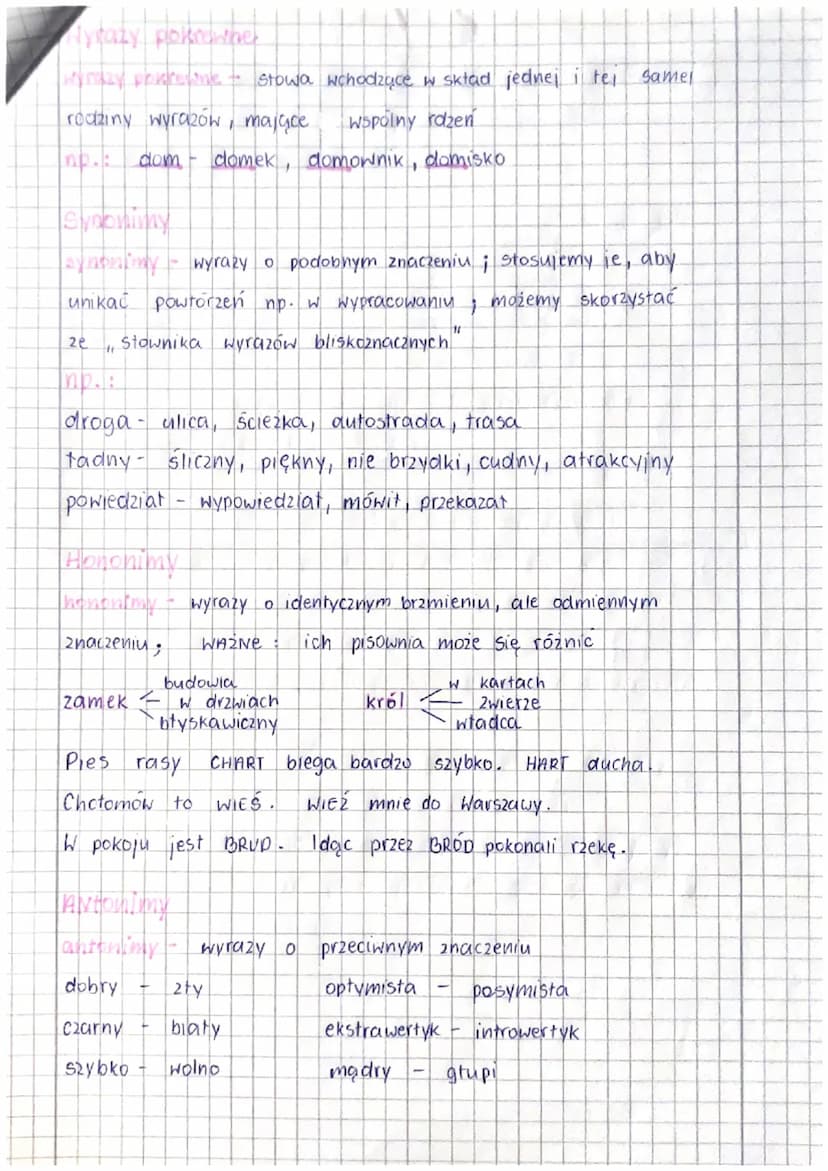 Wyrazy pokrewne
wyrazy pokrewne - słowa wchodzące w skład jednej i tej samej
rodziny wyrazów, mające wspólny rdzeń
np.: dom - domek, domownik, domisko
Synonimy
synonimy - wyrazy o podobnym znaczeniu ; stosujemy je, aby
unikać powtórzeń np. w wypracowaniu ; możemy skorzystać
ze „Słownika wyrazów bliskoznacznych"
np.:
droga - ulica, ścieżka, autostrada, trasa
ładny - śliczny, piękny, nie brzydki, cudny, atrakcyjny
powiedział - wypowiedział, mówił, przekazał
Hononimy
hononimy - wyrazy o identycznym brzmieniu, ale odmiennym
znaczeniu ; WAŻNE : ich pisownia może się różnić
budowla w kartach
zamek w drzwiach król zwierze
błyskawiczny władca
Pies rasy CHART biega bardzo szybko. HART ducha.
Chotomów to WIEŚ. WIEŹ mnie do Warszawy.
W pokoju jest BRUD. Idąc przez BRÓD pokonali rzekę.
Antonimy
antonimy - wyrazy o przeciwnym znaczeniu
dobry - zły optymista - pesymista
czarny - biały ekstrawertyk - introwertyk
szybko - wolno mądry - głupi